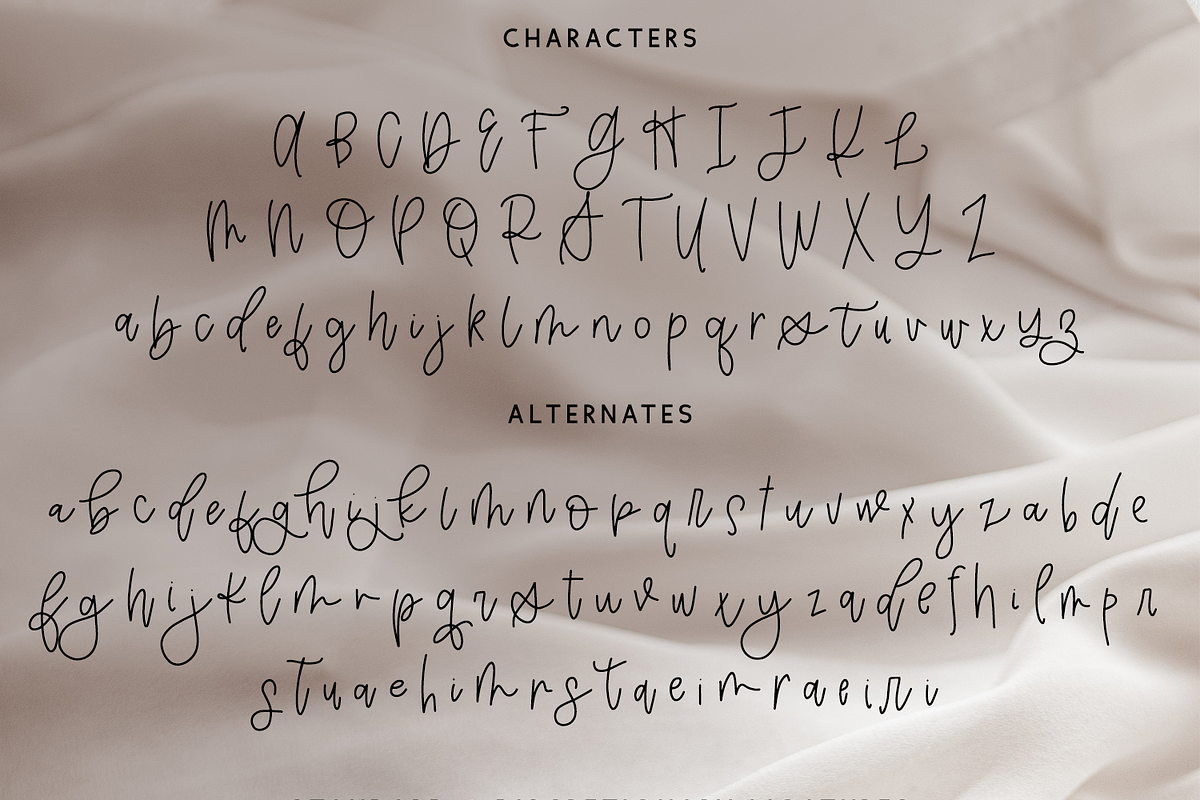 CHARACTERS
A B C D E F G H I J K L
M N O P Q R S T U V W X Y Z
a b c d e f g h i j k l m n o p q r s t u v w x y z
ALTERNATES
a b c d e f g h i j k l m n o p q r s t u v w x y z a b d e
f g h i j k l m r p q r s t u v w x y z a d e f h i l m p r
s t u a e h i m r s t a e i m r a e i r i